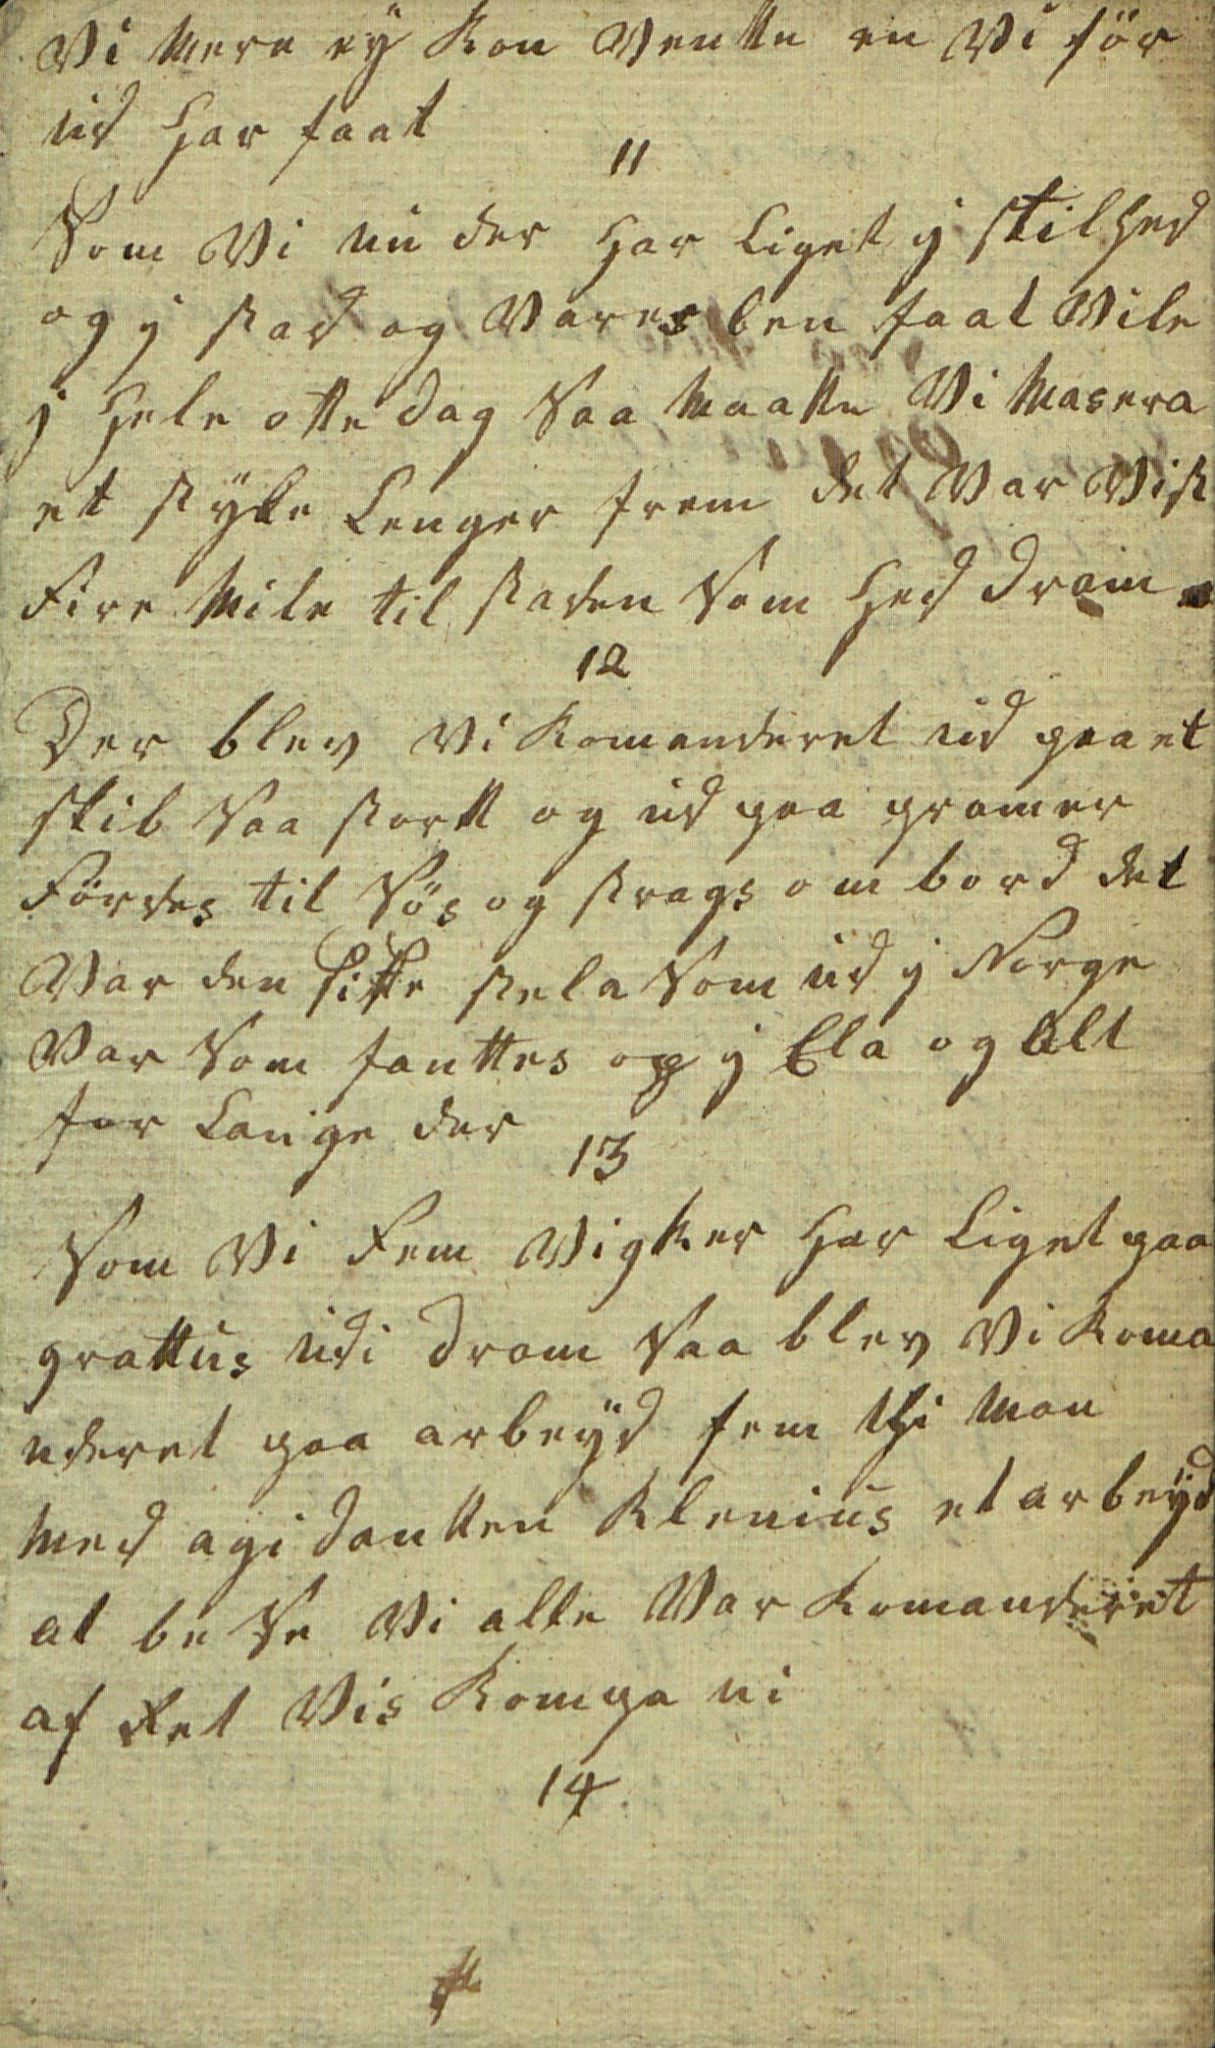 Vi mere ey Kon Ventte en Vi för
ud har faat
11
Som Vi nu der har Liget y stilhed
og y stad og Vores ben faat Vile
y hele otte dag Saa Maatte Vi Masera
et styke Lenger frem det Var Vist
Fire Mile til staden Som hed dram
12
Der blev Vi Komanderet ud paa et
skib Saa stortt og ud paa pramer
Fördes til Söes og strags om bord det
Var den sitste stela Som ud y Norge
Var Som fanttes op y Ela og alt
for Lange der
13
Som Vi Fem Vigker har Liget paa
grattus udi dram Saa blev Vi Koma
nderet paa arbeyd fem thi Man
Med agi dantten Klenius et arbeyd
at be Se Vi alle Var Komanderet
af Ret Vis Kompa ni
14